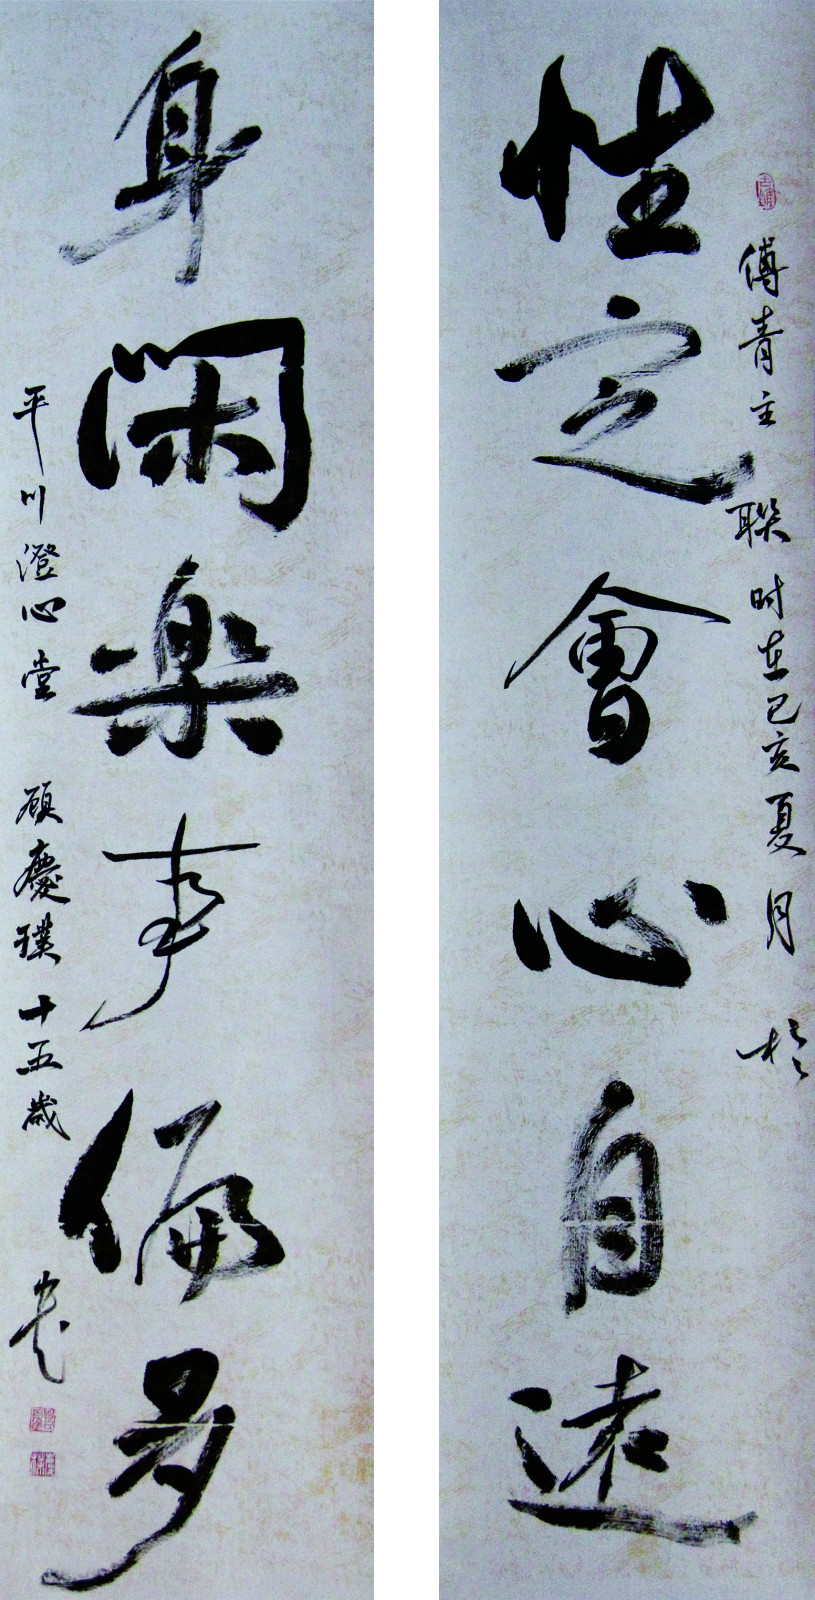 傅青主聯 时在己亥夏月 於
性定會心自遠
身閑楽事偏多
平川澄心堂 顾慶璞十五歲